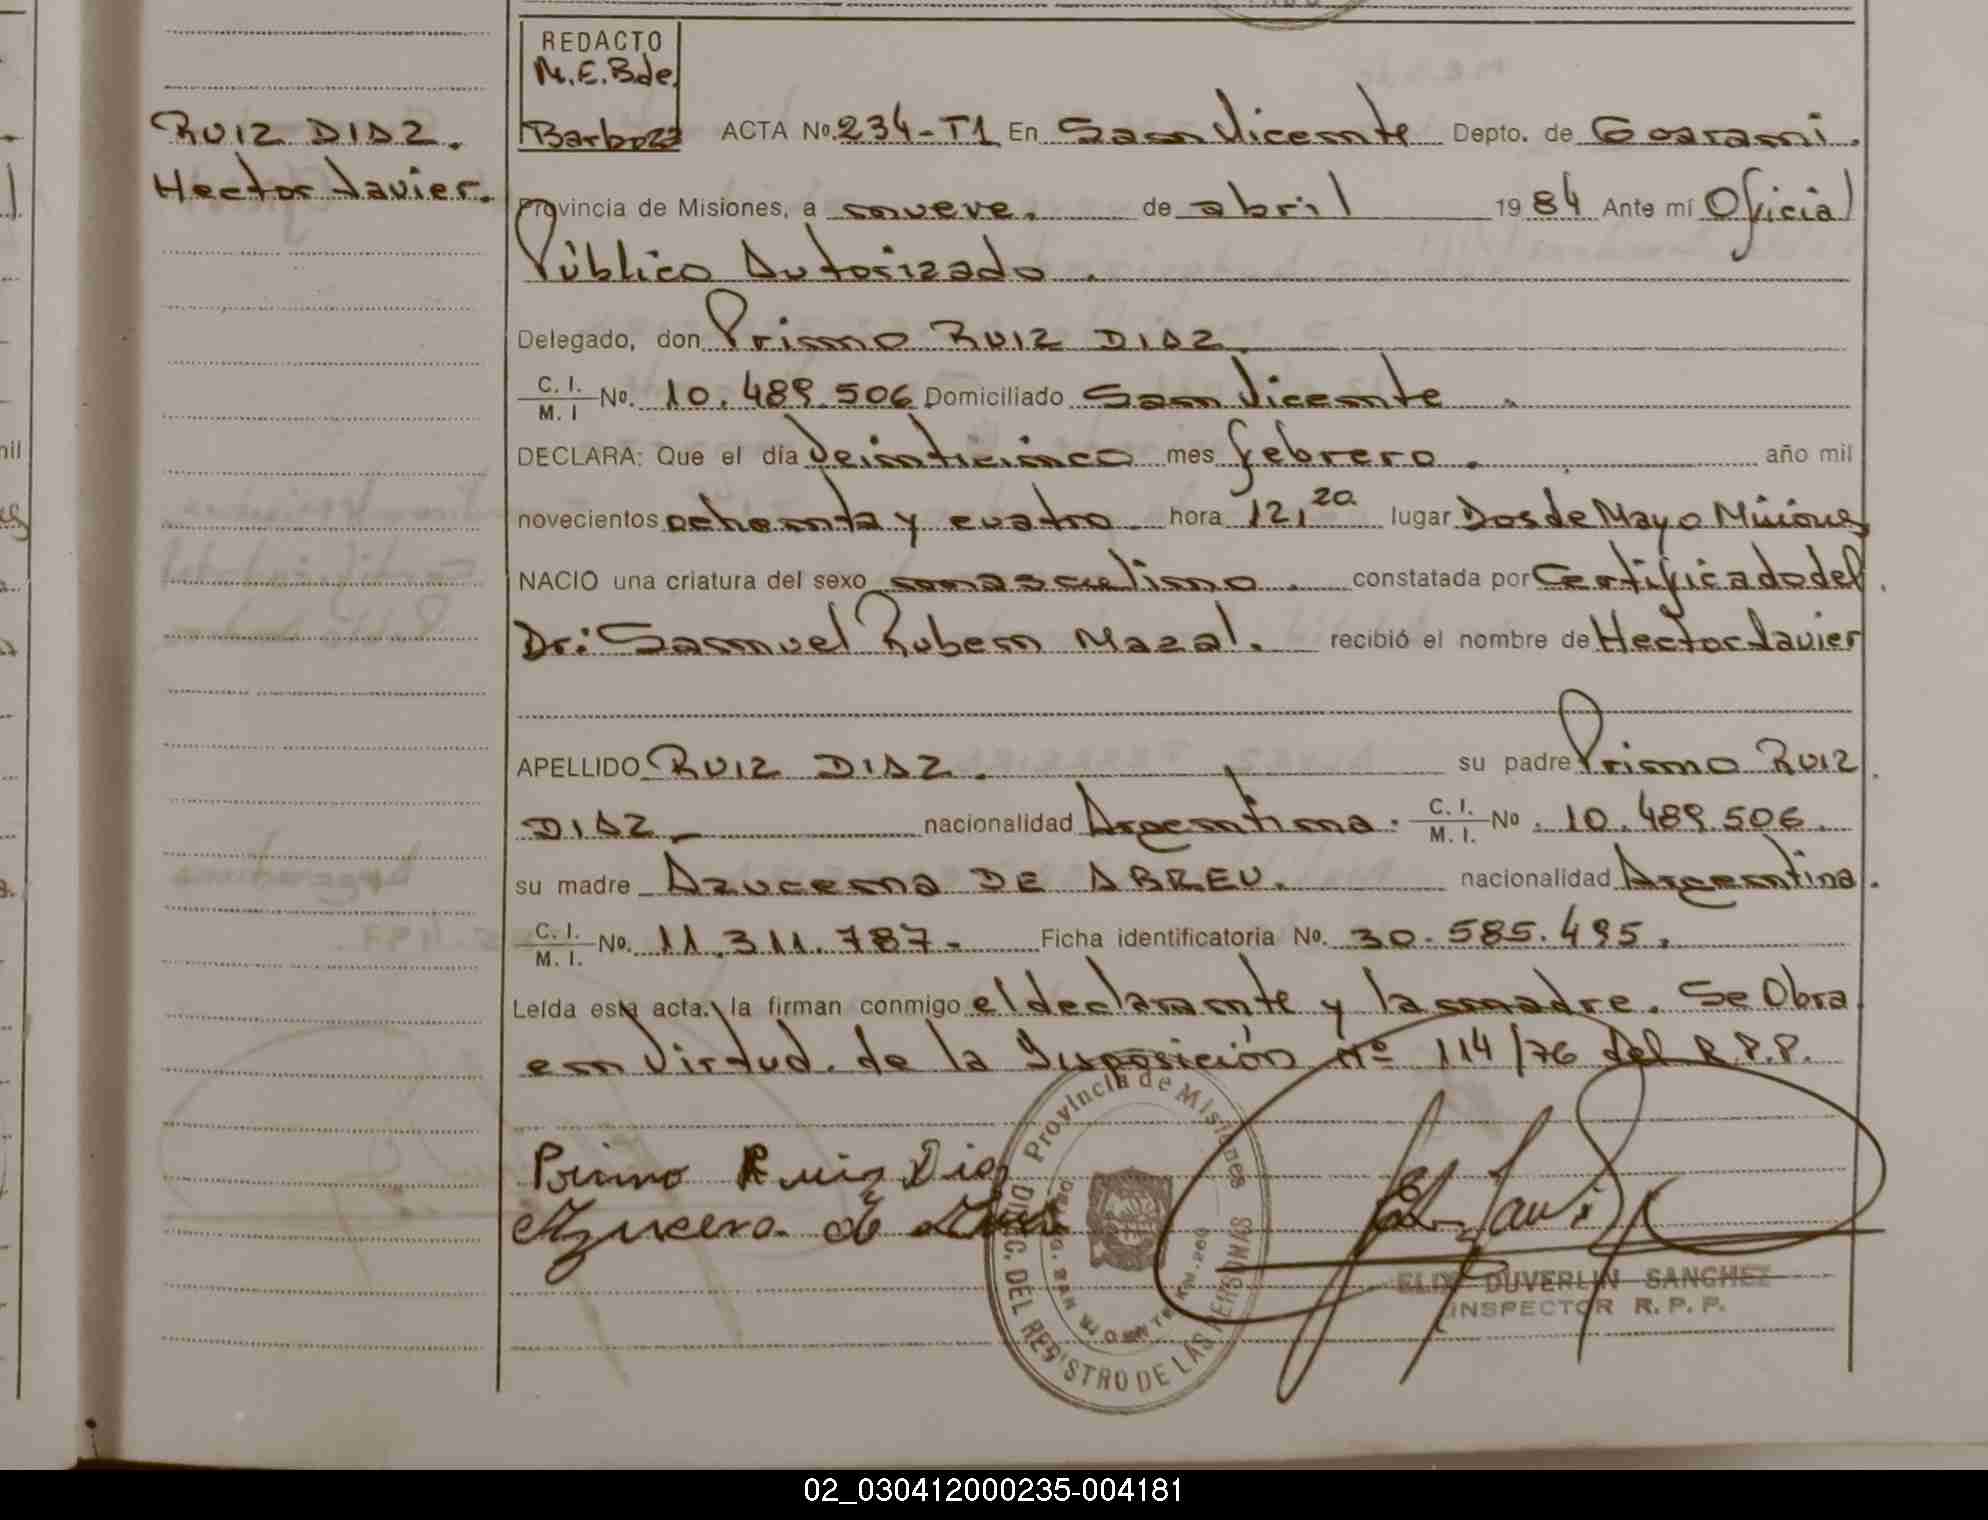 REDACTO
M.E.B de.
Barboza
RUIZ DIAZ.
Hector Javier.
ACTA No. 234-T1 En San Vicente Depto. de Guarani.
Provincia de Misiones, a nueve. de abril 19 84 Ante mí Oficial
Público Autorizado.
Delegado, don Primo RUIZ DIAZ.
C. I. / M. I No. 10.489.506 Domiciliado San Vicente.
DECLARA: Que el día Veinticinco mes febrero. año mil
novecientos ochenta y cuatro. hora 12,20 lugar Dos de Mayo Misiones
NACIO una criatura del sexo masculino. constatada por Certificado del
Dr: Samuel Ruben Mazal. recibió el nombre de Hector Javier
APELLIDO RUIZ DIAZ. su padre Primo RUIZ
DIAZ nacionalidad Argentina. C. I. / M. I. No. 10.489.506.
su madre Azucena DE ABREU. nacionalidad Argentina.
C. I. / M. I. No. 11.311.787- Ficha identificatoria No. 30.585.495.
Leída esta acta, la firman conmigo el declarante y la madre. Se Obra
en Virtud. de la Disposición Nº 114/76 del R.P.P.
Primo Ruiz Diaz
Azucena de
Provincia de Misiones
DIREC. DEL REGISTRO DE LAS PERSONAS
DUVERLIN SANCHEZ
INSPECTOR R. P. P.
02_030412000235-004181